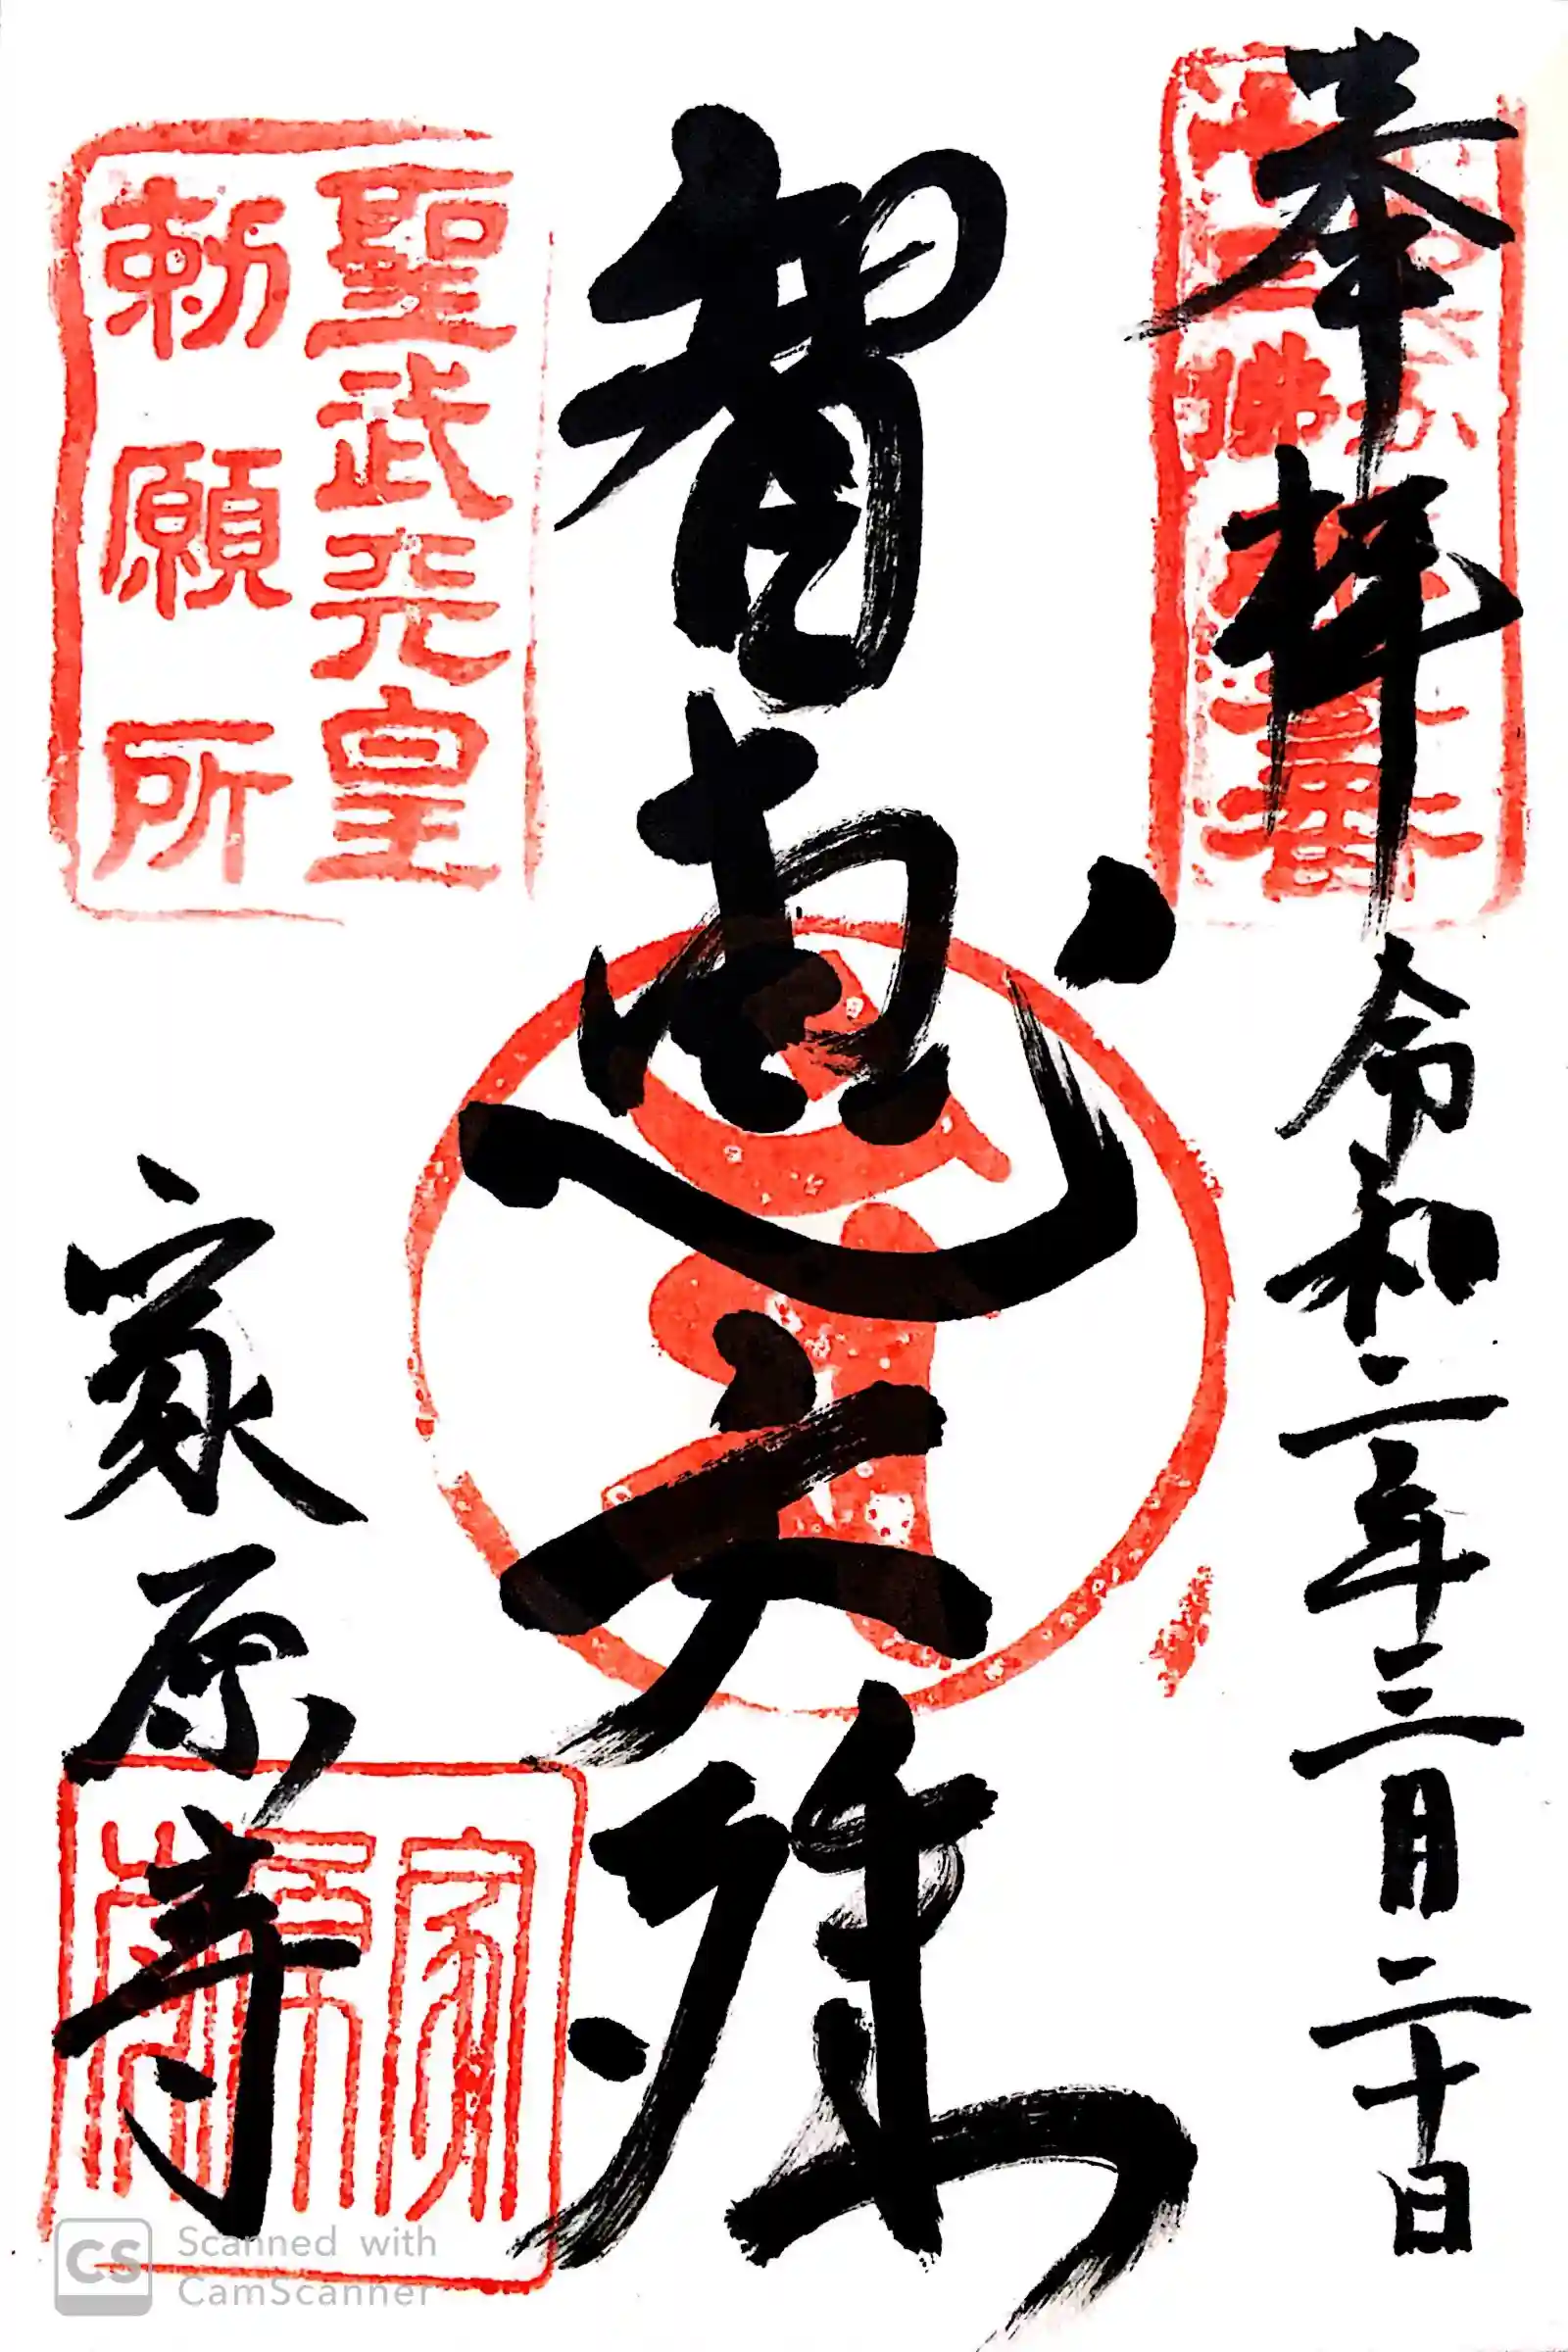 奉拝 令和二年三月二十日
十三佛
第三番
智恵文殊
聖武天皇
勅願所
家原寺
家原寺
CS Scanned with
CamScanner